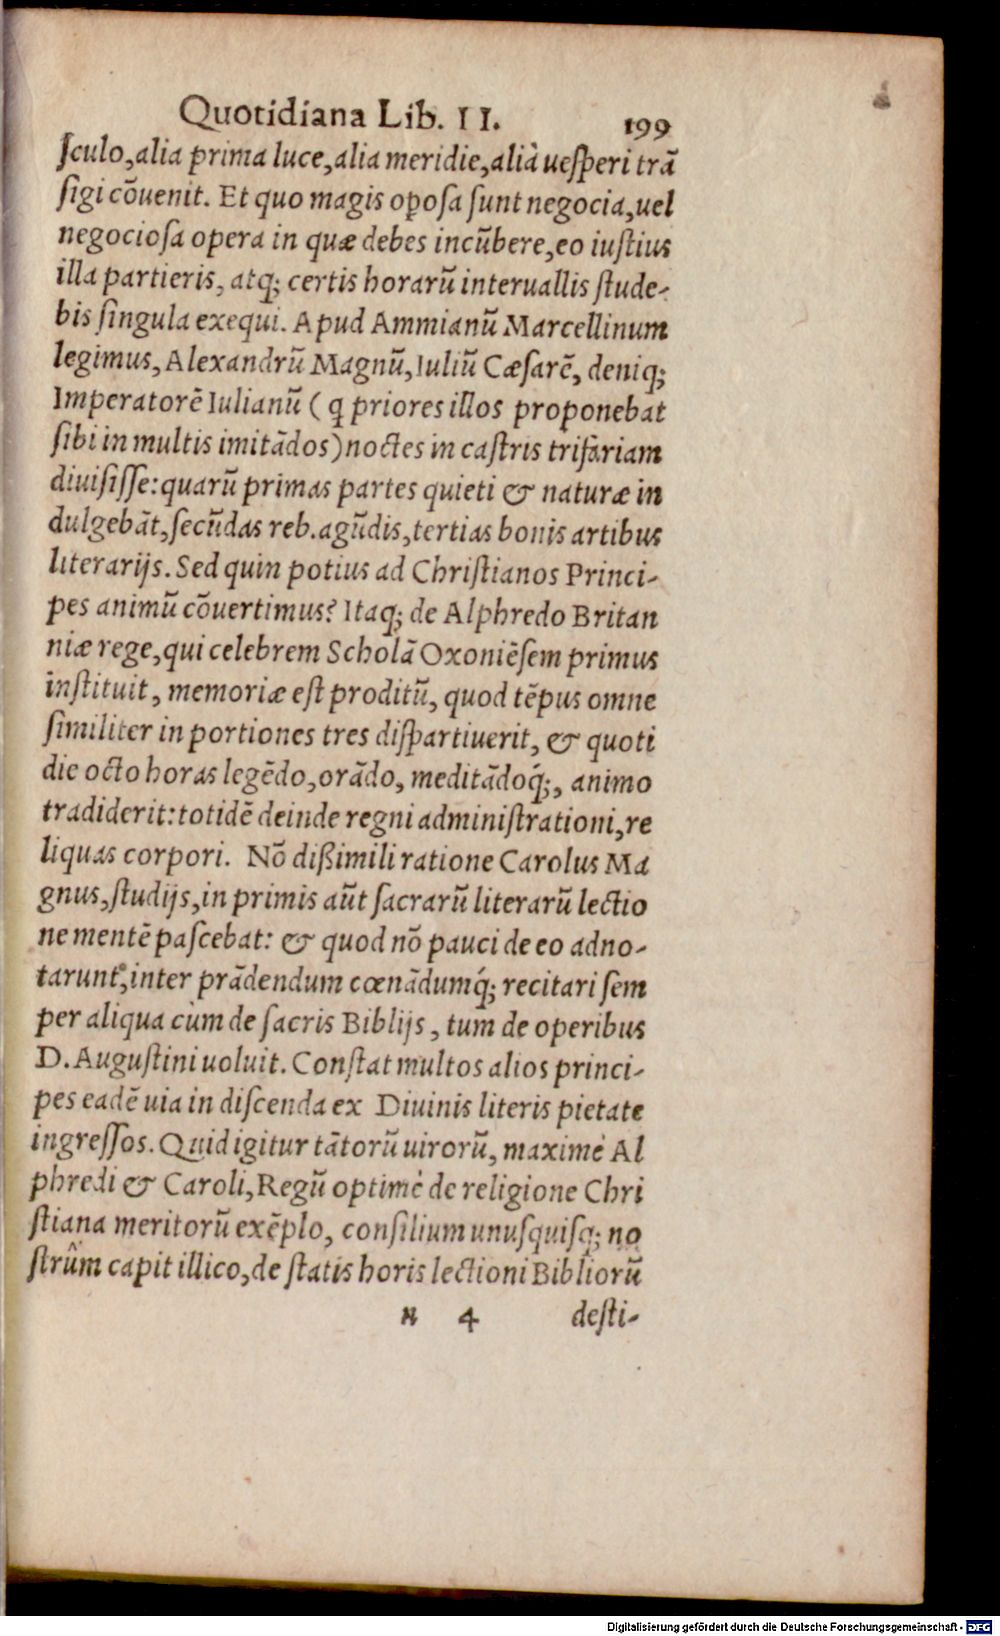 Quotidiana Lib. II. 199
ſculo, alia prima luce, alia meridie, alià ueſperi trã
ſigi cõuenit. Et quo magis oꝑoſa ſunt negocia, uel
negocioſa opera in quæ debes incũbere, eo iuſtius
illa partieris, atq; certis horarũ interuallis ſtude-
bis ſingula exequi. Apud Ammianũ Marcellinum
legimus, Alexandrũ Magnũ, Iuliũ Cæſarẽ, deniq;
Imperatorẽ Iulianũ ( q priores illos proponebat
ſibi in multis imitãdos) noctes in caſtris trifariam
diuiſiſſe: quarũ primas partes quieti & naturæ in
dulgebãt, ſecũdas reb. agũdis, tertias bonis artibus
literarijs. Sed quin potius ad Chriſtianos Princi-
pes animũ cõuertimus? Itaq; de Alphredo Britan
niæ rege, qui celebrem Scholã Oxoniẽſem primus
inſtituit, memoriæ eſt proditũ, quod tẽpus omne
ſimiliter in portiones tres diſpartiuerit, & quoti
die octo horas legẽdo, orãdo, meditãdoq́;, animo
tradiderit: totidẽ deinde regni adminiſtrationi, re
liquas corpori. Nõ dißimili ratione Carolus Ma
gnus, ſtudijs, in primis aũt ſacrarũ literarũ lectio
ne mentẽ paſcebat: & quod nõ pauci de eo adno-
tarunt, inter prãdendum cœnãdumq́; recitari ſem
per aliqua cùm de ſacris Biblijs, tum de operibus
D. Auguſtini uoluit. Conſtat multos alios princi-
pes eadẽ uia in diſcenda ex Diuinis literis pietate
ingreſſos. Quid igitur tãtorũ uirorũ, maximè Al
phredi & Caroli, Regũ optimè de religione Chri
ſtiana meritorũ exẽplo, conſilium unuſquiſq; no
ſtrûm capit illico, de ſtatis horis lectioni Bibliorũ
n 4 deſti-
Digitalisierung gefördert durch die Deutsche Forschungsgemeinschaft - DFG